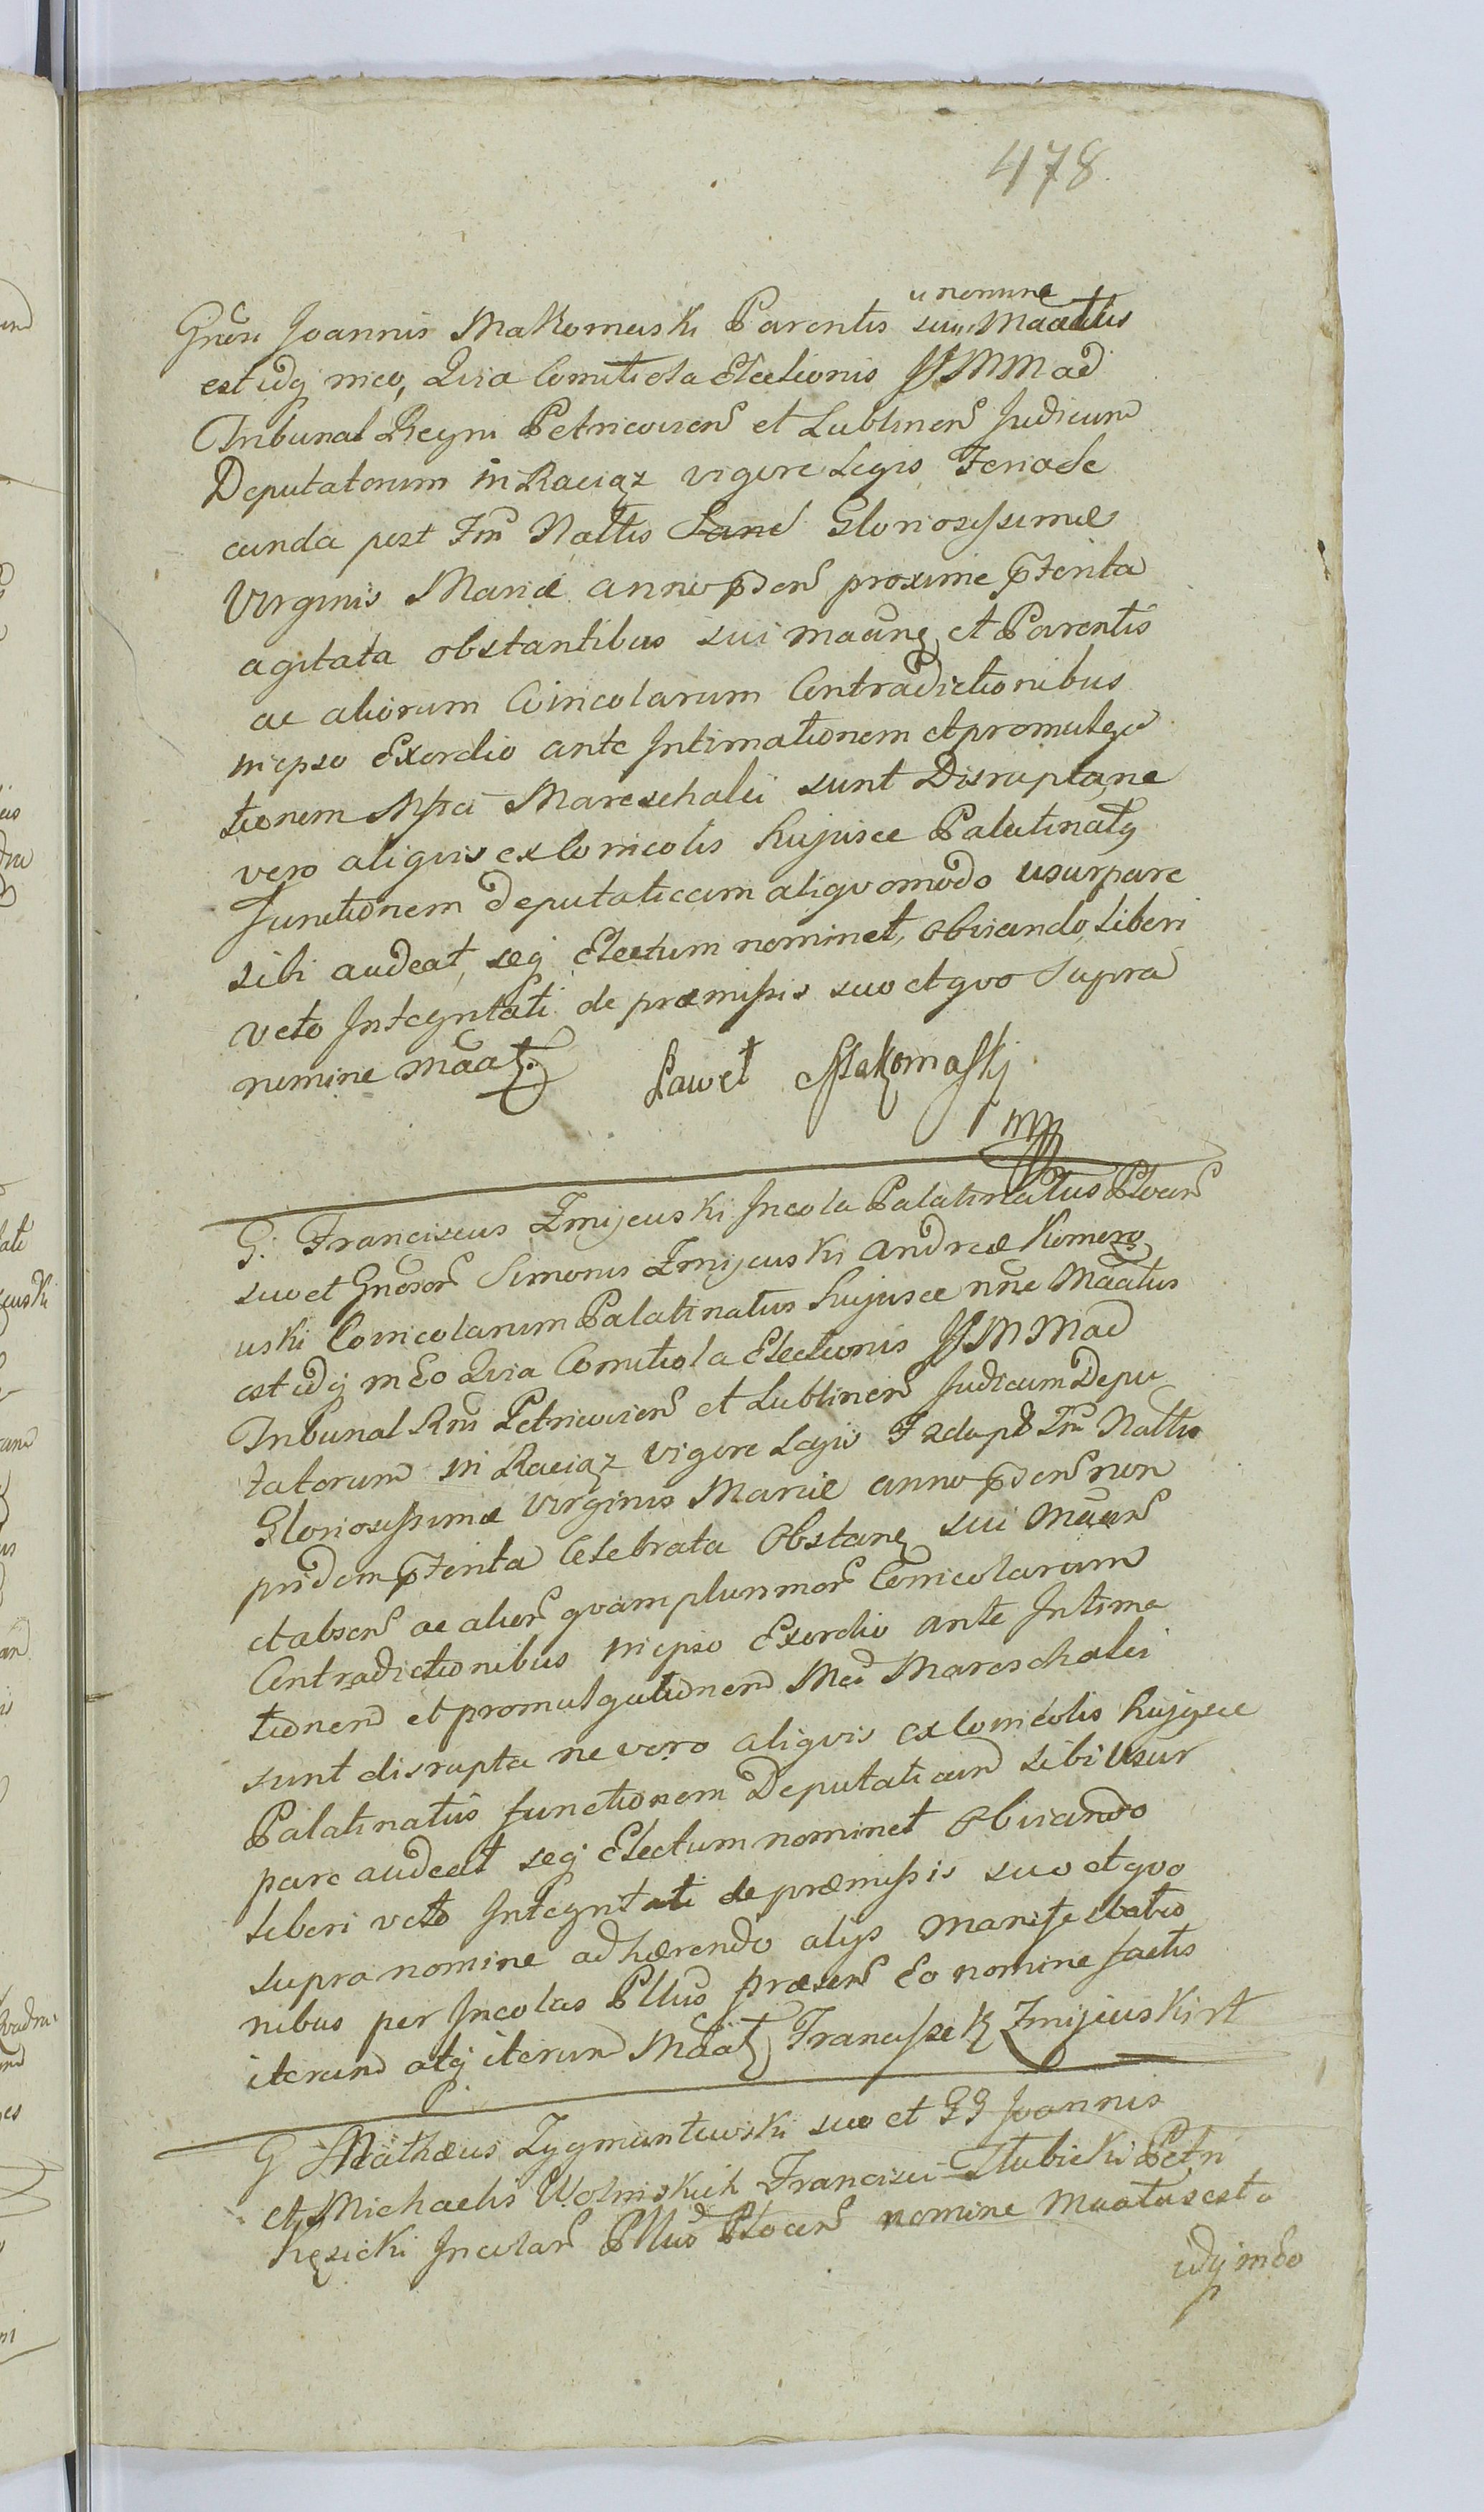 478.
u nomine
Gnosi Joannis Makomaski Parentis sui Maatus
est idq in eo, Qvia Comitiola Electionis JJ MM ad
Tribunal Regni Petricovien et Lublinen Judicum
Deputatorum in Raciąz vigore Legis Feria Se
cunda post Fm Nattis Sanc Gloriosissimæ
Virginis Mariæ anno pden proxime pterita
agitata obstantibus sui maanq et Parentis
ac aliorum Coincolarum Contradictionibus
in ipso Exordio ante Intimationem et promulga
tionem Mfci Mareschalci sunt Disrupta, ne
vero aliqvis ex Conicolis hujusce Palatinatq
functionem deputaticam aliqvomodo usurpare
sibi audeat, seq Electum nominet, obviando liberi
veto Integritati de præmissis suo et qvo Supra
nomine maat.
Paweł Makomaskj
mp
G. Franciscus Zmijewski Incola Palatinatus Plocen
suo et Gnosor Simonis Zmijewski Andreæ Komoro
wski Conicolarum Palatinatus hujusce nne Maatus
est idq in Eo Qvia Comitiola Electionis JJ MM ad
Tribunal Rni Petricovien et Lublinen Judicum Depu
tatorum in Raciąz vigore Legis F 2da pt Fm Nattis
Gloriosissimæ Virginis Mariæ anno pden non
pridem pterita Celebrata Obstanq sui Maan
et absen ac alior qvam plurimor Conicolarum
Contradictionibus in ipso Exordio ante Intima
tionem et promulgationem Mci Mareschalci
sunt disrupta ne vero aliqvis ex Conicolis hujusce
Palatinatus functionem Deputaticam sibi Usur
pare audeat seq Electum nominet Obviando
liberi veto Integritati de præmissis suo et qvo
supra nomine adhærendo alijs manifestatio
nibus per Incolas Pttus præsen Eo nomine factis
iterum atq iterum Maat Franciszek Zmijewski
G Mathæus Zygmuntowski suo et GG Joannis
et Michaelis Wolinskich Francisci Słubicki Petri
Kęsicki Incolar Pttus Plocen nomine Maatus est
idq in Eo